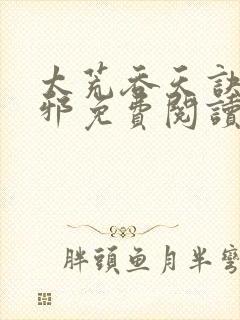 大荒吞天訣
邪免費閱讀
胖頭魚月半彎